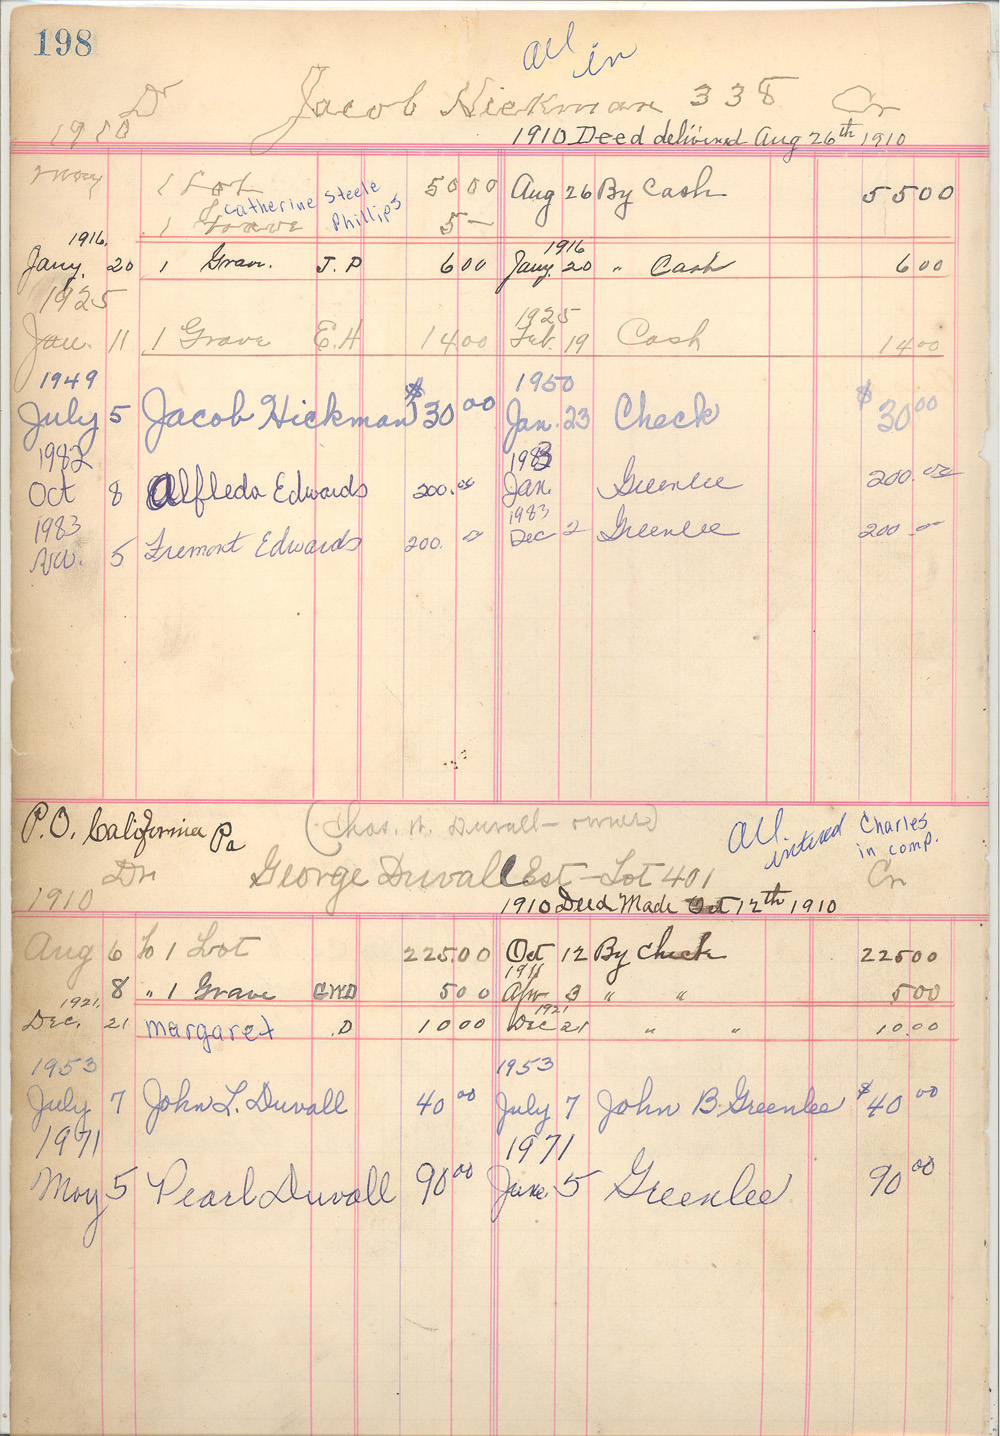 198
All in
Dr Jacob Hickman 338 Cr
1910 1910 Deed delivered Aug 26th 1910
1 Lot 50 00 Aug 26 By Cash 55 00
Catherine Steele Phillips
1 Grave 5 —
1916 1916
Jany. 20 1 Grave. J. P 6 00 Jany. 20 " Cash 6 00
1925 1925
Jan. 11 1 Grave E.H 14 00 Feb. 19 Cash 14 00
1949 1950
July 5 Jacob Hickman $30 00 Jan. 23 Check $30 00
1982 1983
Oct 8 Alfleda Edwards 200.00 Jan. Greenlee 200.00
1983 1983
Nov. 5 Fremont Edwards 200. 00 Dec 2 Greenlee 200 00
P.O. California Pa (Chas. A. Duvall - owner) All intered Charles in comp.
Dr George Duvall Est - Lot 401 Cr
1910 1910 Deed Made Oct 12th 1910
Aug 6 To 1 Lot 225 00 Oct 12 By Check 225 00
1911
8 " 1 Grave GWD 5 00 Apr 3 " " 5 00
1921, 1921
Dec. 21 Margaret .D 10 00 Dec 21 " " 10.00
1953 1953
July 7 John L. Duvall 40 00 July 7 John B. Greenlee $40 00
1971 1971
May 5 Pearl Duvall 90 00 June 5 Greenlee 90 00